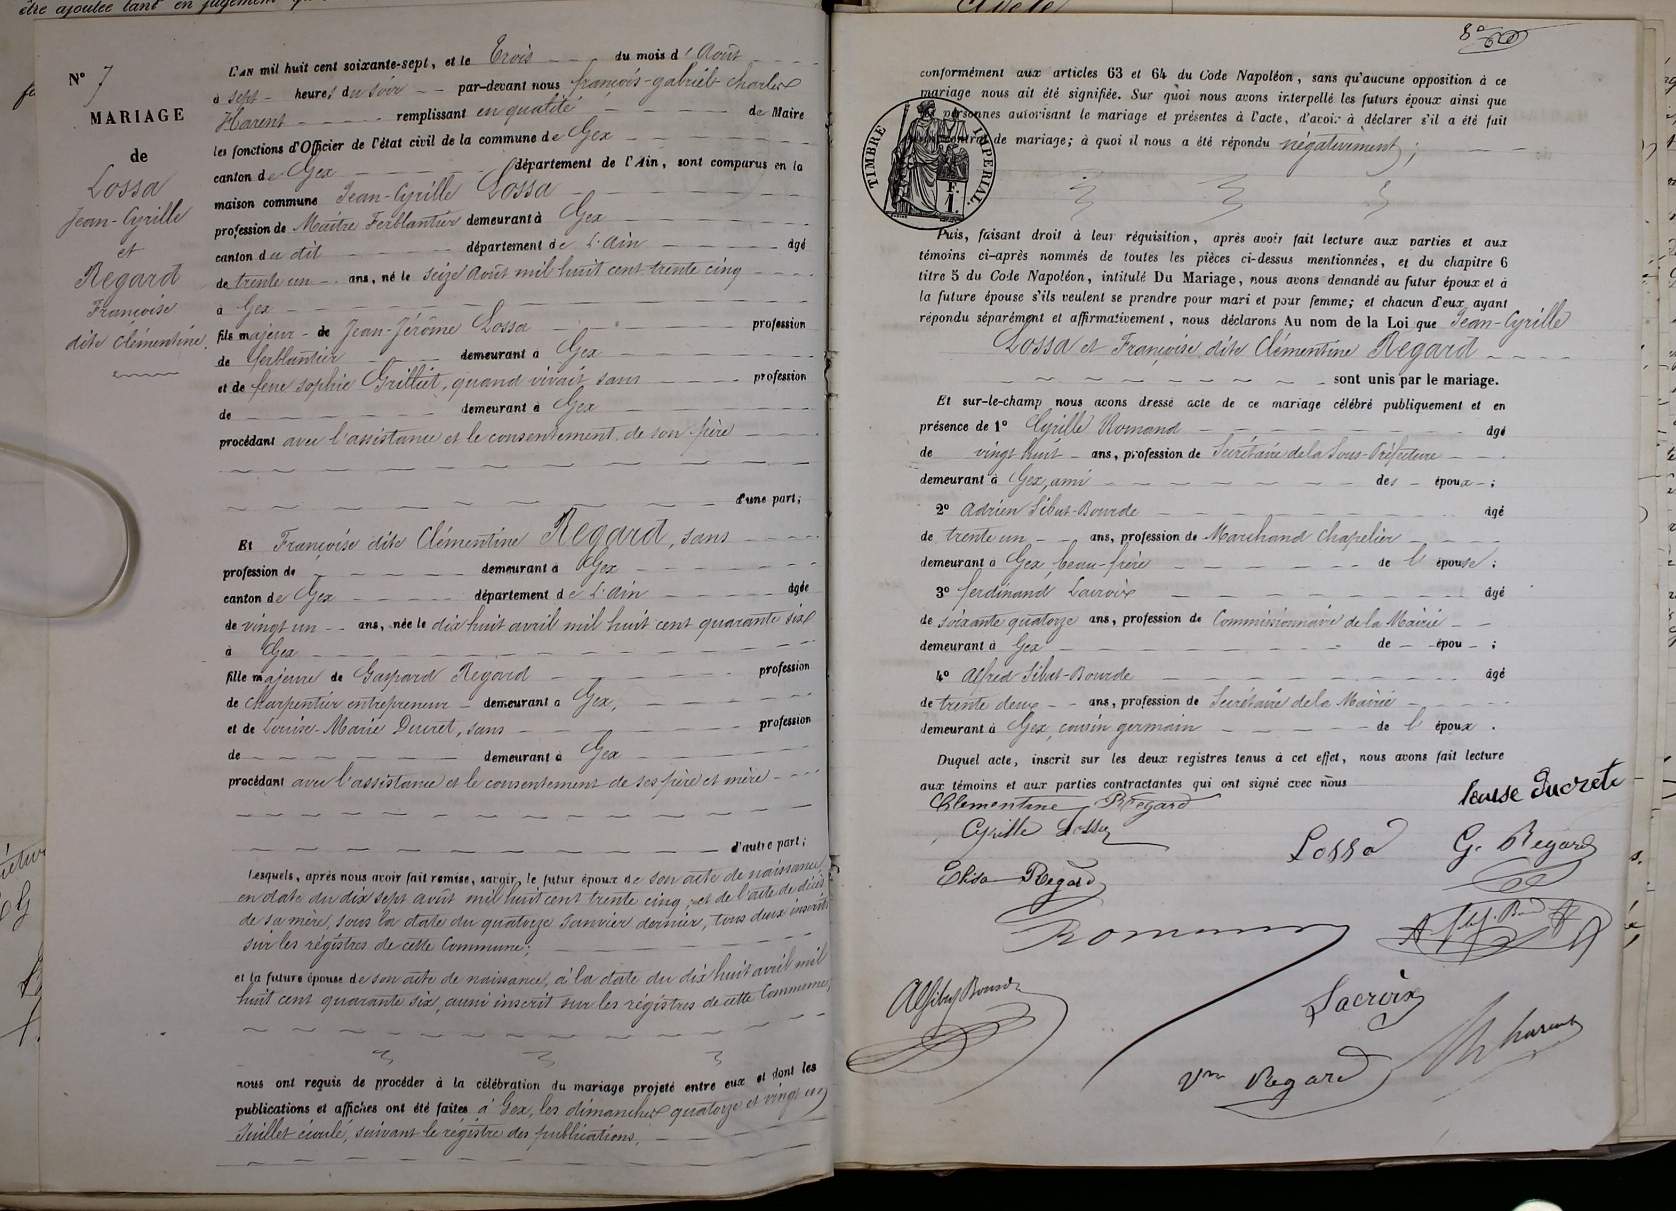 être ajoutée tant en jugement
N° 7
MARIAGE
de
Lossa
Jean-Cyrille
et
Regard
Françoise
dite Clémentine.
L'AN mil huit cent soixante-sept, et le Trois du mois d'Août
à sept heures du soir par-devant nous françois-gabriel-charles
Harent remplissant en qualité de Maire
les fonctions d'Officier de l'état civil de la commune de Gex
canton de Gex département de l'Ain, sont comparus en la
maison commune Jean-Cyrille Lossa
profession de Maître Ferblantier demeurant à Gex
canton du dit département de L'Ain âgé
de trente un ans, né le seize Août mil huit cent trente cinq
à Gex
fils majeur de Jean-Jérôme Lossa profession
de ferblantier demeurant à Gex
et de feue sophie Grilliet, quand vivait, sans profession
de demeurant à Gex
procédant avec l'assistance et le consentement de son père
d'une part;
Et Françoise dite Clémentine Regard, sans
profession de demeurant à Gex
canton de Gex département de L'Ain âgée
de vingt un ans, née le dix huit avril mil huit cent quarante six
à Gex
fille majeure de Gaspard Regard profession
de charpentier entrepreneur demeurant à Gex,
et de Louise-Marie Ducret, sans profession
de demeurant à Gex
procédant avec l'assistance et le consentement de ses père et mère
d'autre part;
Lesquels, après nous avoir fait remise, savoir, le futur époux de son acte de naissance,
en date du dix sept août mil huit cent trente cinq, et de l'acte de décès
de sa mère, sous la date du quatorze Janvier dernier, tous deux inscrits
sur les régistres de cette Commune;
et la future épouse de son acte de naissance, à la date du dix huit avril mil
huit cent quarante six, aussi inscrit sur les régistres de cette Commune,
nous ont requis de procéder à la célébration du mariage projeté entre eux et dont les
publications et affiches ont été faites à Gex, les dimanches quatorze et vingt un
Juillet écoulé, suivant le régistre des publications,
8°
conformément aux articles 63 et 64 du Code Napoléon, sans qu'aucune opposition à ce
mariage nous ait été signifiée. Sur quoi nous avons interpellé les futurs époux ainsi que
personnes autorisant le mariage et présentes à l'acte, d'avoir à déclarer s'il a été fait
de mariage; à quoi il nous a été répondu négativement;
TIMBRE IMPERIAL.
1 F.
Puis, faisant droit à leur réquisition, après avoir fait lecture aux parties et aux
témoins ci-après nommés de toutes les pièces ci-dessus mentionnées, et du chapitre 6
titre 5 du Code Napoléon, intitulé Du Mariage, nous avons demandé au futur époux et à
la future épouse s'ils veulent se prendre pour mari et pour femme; et chacun d'eux ayant
répondu séparément et affirmativement, nous déclarons Au nom de la Loi que Jean-Cyrille
Lossa et Françoise dite Clémentine Regard
sont unis par le mariage.
Et sur-le-champ nous avons dressé acte de ce mariage célébré publiquement et en
présence de 1° Cyrille Romand âgé
de vingt huit ans, profession de Secrétaire de la Sous-Préfecture
demeurant à Gex, ami des époux;
2° Adrien Sibut-Bourde âgé
de trente un ans, profession de Marchand chapelier
demeurant à Gex, beau-frère de l'épouse;
3° Ferdinand Lacroix âgé
de soixante quatorze ans, profession de Commissionnaire de la Mairie
demeurant à Gex de épou ;
4° Alfred Sibut-Bourde âgé
de trente deux ans, profession de Secrétaire de la Mairie
demeurant à Gex, cousin germain de l'époux.
Duquel acte, inscrit sur les deux registres tenus à cet effet, nous avons fait lecture
aux témoins et aux parties contractantes qui ont signé avec nous
Clementine Regard
louise Ducrete
Cyrille Lossa
Lossa
G. Regard
Elisa Regard
Romand
Lacroix
Harent
Regard